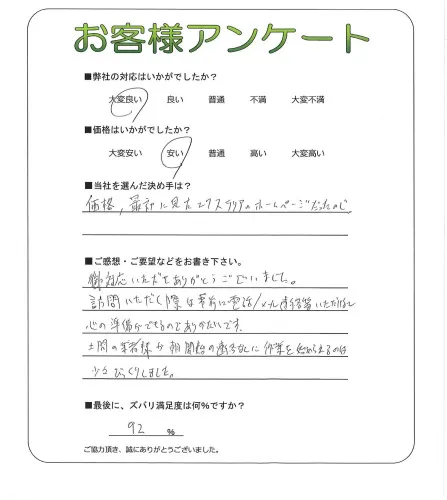 お客様アンケート
■弊社の対応はいかがでしたか？
大変良い 良い 普通 不満 大変不満
■価格はいかがでしたか？
大変安い 安い 普通 高い 大変高い
■当社を選んだ決め手は？
価格, 最初に見たエクステリアのホームページだったので
■ご感想・ご要望などをお書き下さい。
御対応いただきありがとうございました。
訪問いただく際は事前に電話/メール連絡等いただければ
心の準備ができるのでありがたいです。
土間の業者様が朝開始の連絡なしに作業を始められるのは
少々びっくりしました。
■最後に、ズバリ満足度は何%ですか？
92 %
ご協力頂き、誠にありがとうございました。